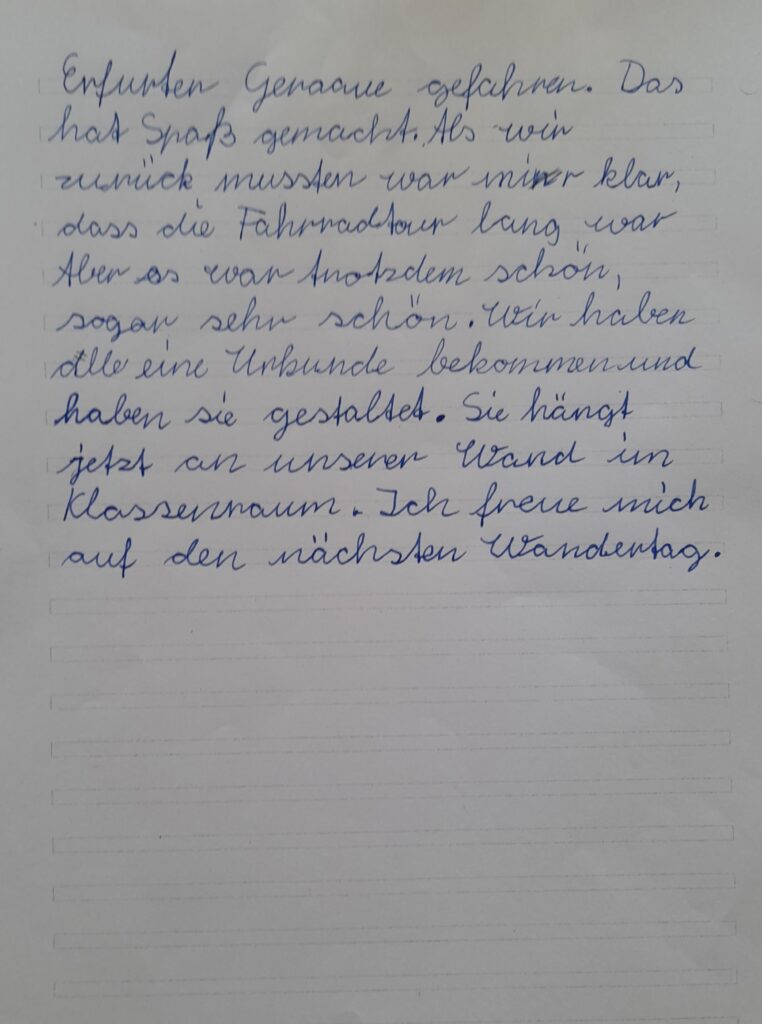 Erfurter Geraaue gefahren. Das
hat Spaß gemacht. Als wir
zurück mussten war mir klar,
dass die Fahrradtour lang war
Aber es war trotzdem schön,
sogar sehr schön. Wir haben
alle eine Urkunde bekommen und
haben sie gestaltet. Sie hängt
jetzt an unserer Wand im
Klassenraum. Ich freue mich
auf den nächsten Wandertag.